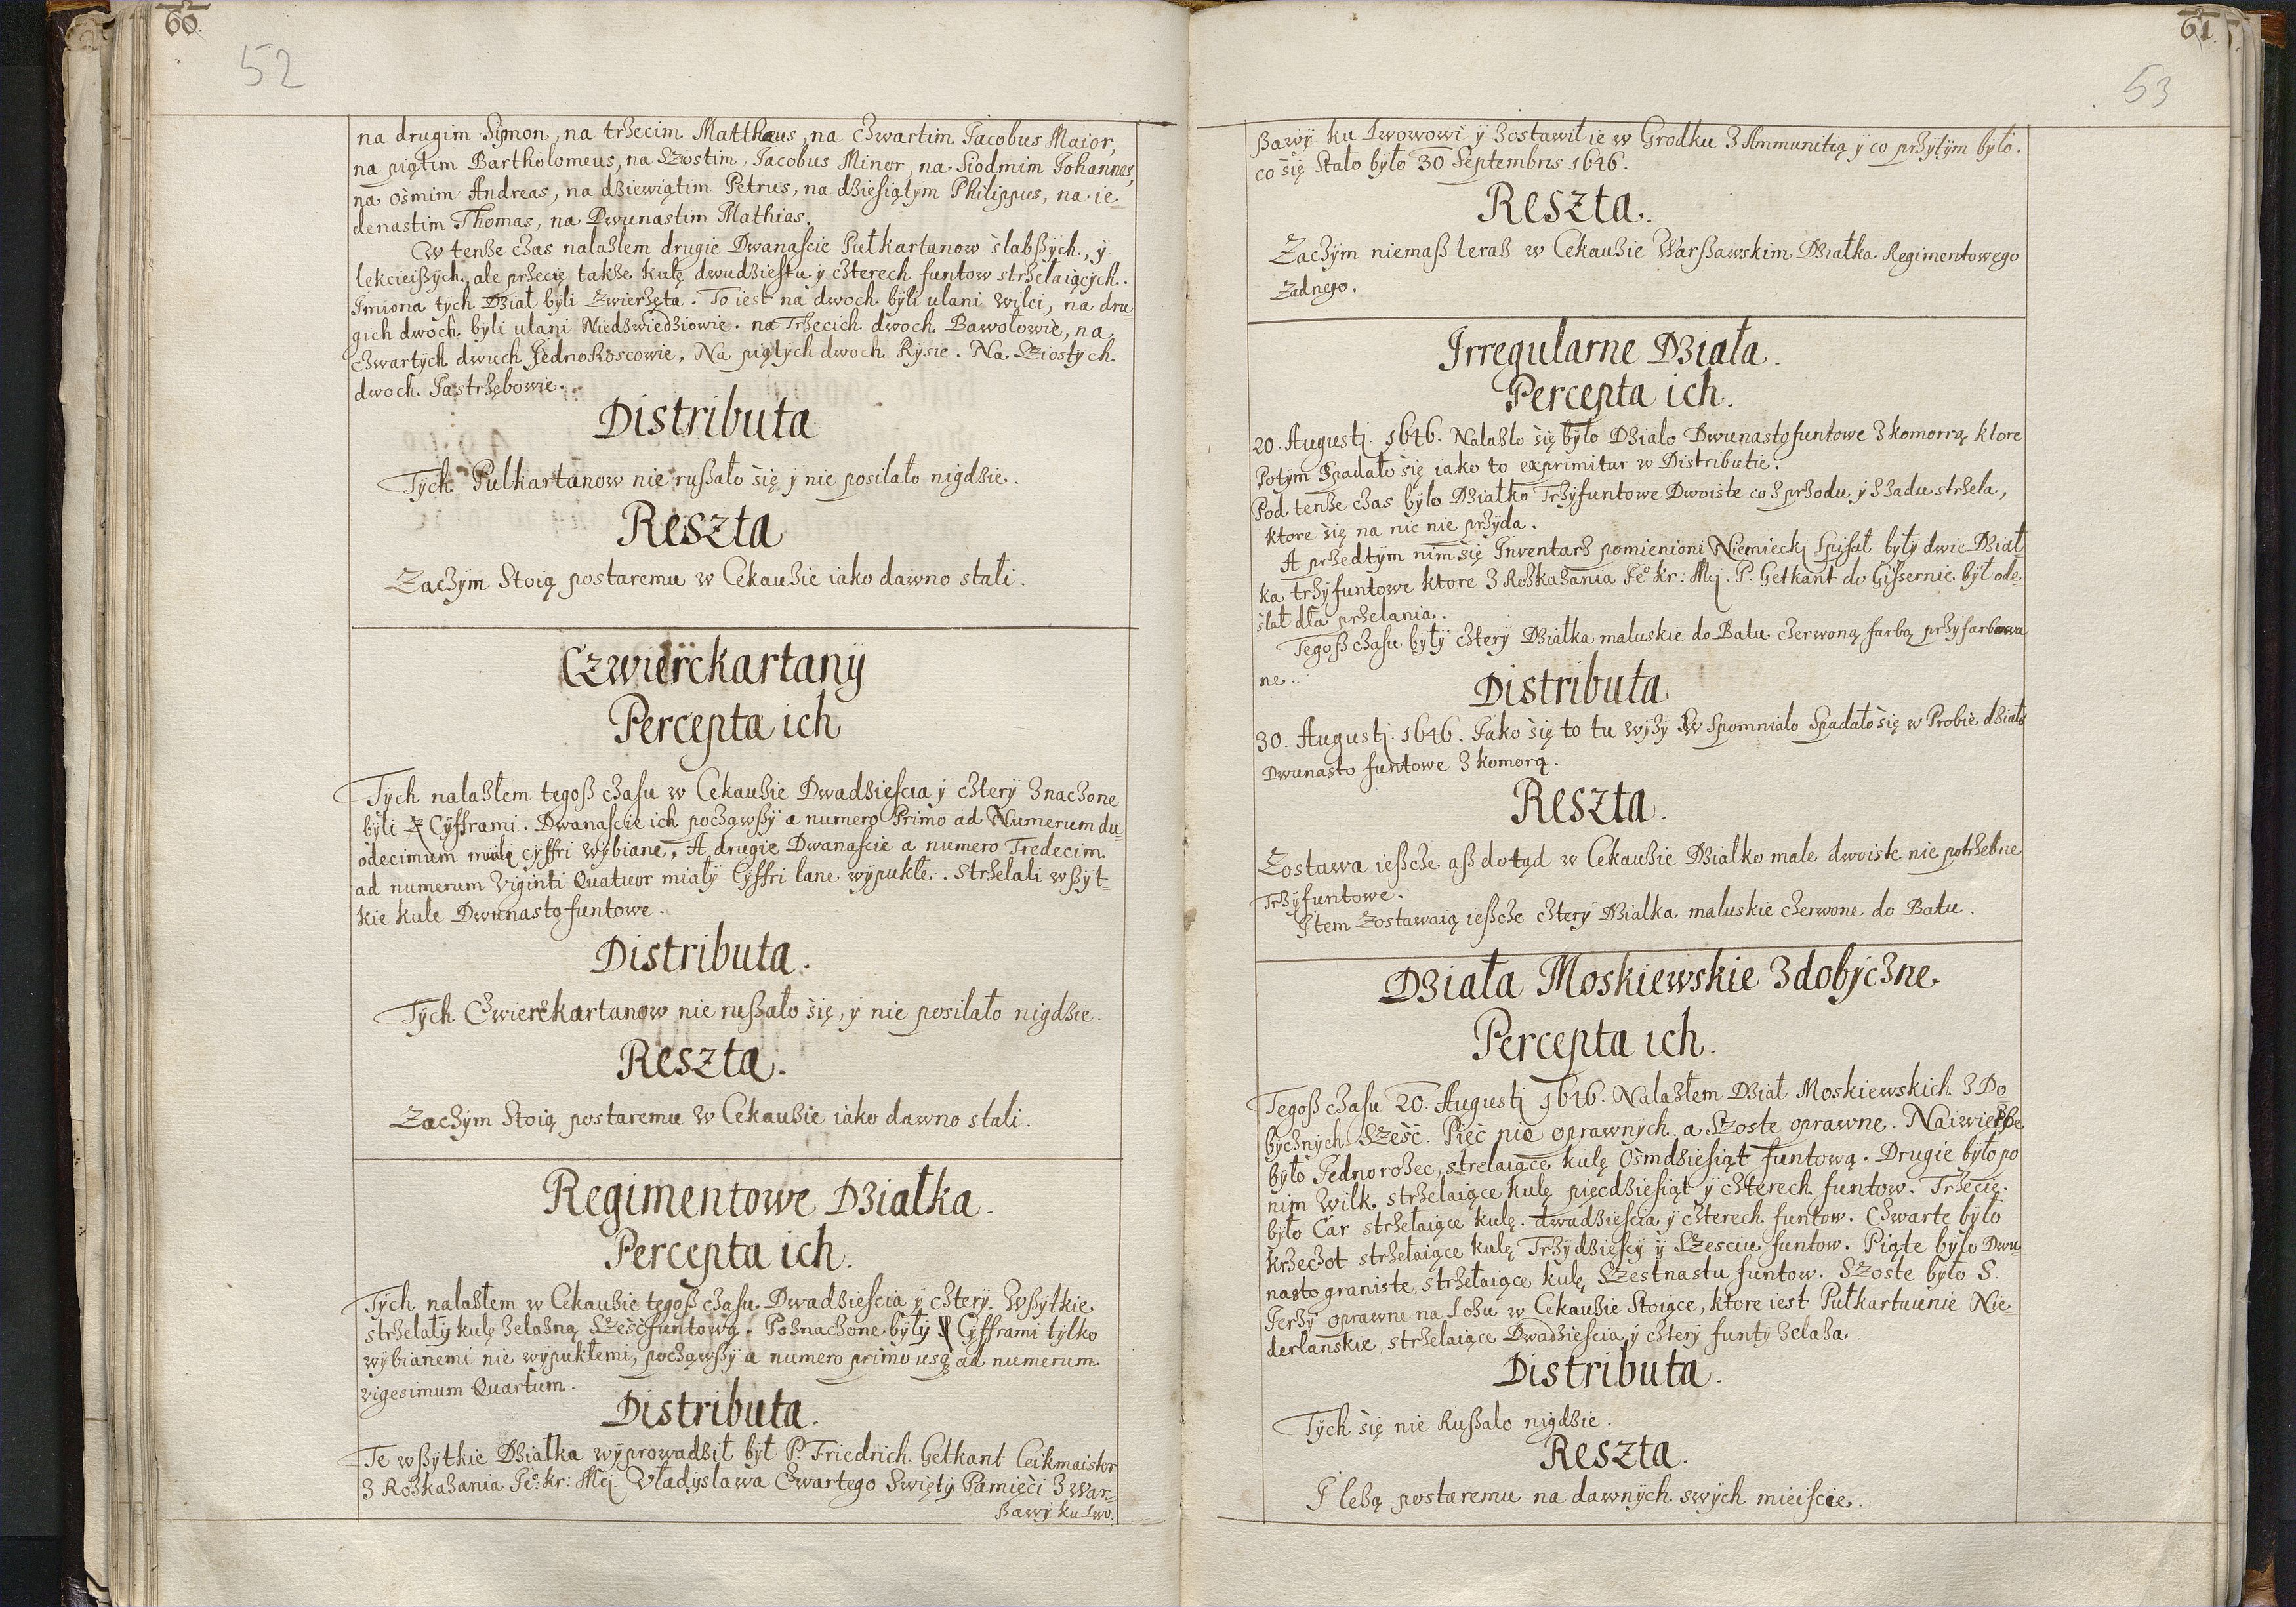 60.
52
na drugim Sÿmon, na trzecim Matthæus, na czwartim Jacobus Maior,
na piątim Bartholomeus, na Szostim, Jacobus Minor, na Siodmim Johannes,
na osmim Andreas, na dziewiątim Petrus, na dziesiątÿm Philippus, na ie-
denastim Thomas, na Dwunastim Mathias.
W tenze czas nalazlem drugie Dwanascie Pułkartanow słabßÿch, ÿ
lekcieißÿch, ale przecię takze kulę dwudziestu ÿ czterech funtow strzelaiącÿch.
Imiona tÿch Dział bÿli Zwierzęta. To iest na dwoch bÿli ulani Wilci, na dru-
gich dwoch bÿli ulani Niedzwiedziowie. na Trzecich dwoch Bawołowie, na
czwartÿch dwuch Jednoroscowie. Na piątÿch dwoch Rÿsie. Na Sziostÿch
dwoch Jastrzębowie.
Distributa
Tÿch Pulkartanow nie rußało się ÿ nie posilało nigdzie.
Reszta
Zaczÿm Stoią postaremu w Cekauzie iako dawno stali.
Czwierckartanÿ
Percepta ich
Tÿch nalazłem tegoß czasu w Cekauzie Dwadziescia ÿ czterÿ znaczone
bÿli Cÿfframi. Dwanascie ich począwßÿ a numero Primo ad Numerum du-
odecimum miałÿ cÿffri wÿbiane, A drugie Dwanascie a numero Tredecim
ad numerum Viginti Quatuor miałÿ Cÿffri lane wÿpukłe. Strzelali wßÿt-
kie kule Dwunasto funtowe.
Distributa.
Tÿch Czwierckartanow nie rußało się, ÿ nie posilało nigdzie.
Reszta.
Zaczÿm Stoią postaremu w Cekauzie iako dawno stali.
Regimentowe Działka.
Percepta ich.
Tÿch nalazłem w Cekauzie tegoß czasu Dwadziescia ÿ czterÿ. Wßÿtkie
strzelałÿ kulę zelazną Szescfuntową. Poznaczone bÿłÿ Cÿfframi tÿlko
wÿbianemi nie wÿpukłemi, począwßÿ a numero primo usq ad numerum
vigesimum Quartum.
Distributa.
Te wßÿtkie Działka wÿprowadził bÿł P. Friedrich Getkant Ceikmaister
z Rozkazania Je: kr: Mci Vładÿsława Czwartego Swiętÿ Pamięci z War-
ßawÿ ku Lwo.
61.
53
ßawÿ ku Lwowowi ÿ zostawił ie w Grodku z Ammunitią ÿ co przÿtÿm bÿło.
co się Stało bÿło 30 Septembris 1646.
Reszta.
Zaczÿm niemaß teraz w Cekauzie Warßawskim Działka Regimentowego
Zadnego.
Irregularne Działa.
Percepta ich.
20. Augusti 1646. Nalazło się bÿło Działo Dwunastofuntowe z komorrą ktore
Potÿm Spadało się iako to exprimitur w Distributie.
Pod tenze czas bÿło Działko Trzÿfuntowe Dwoiste co z przodu ÿ z zadu strzela,
ktore się na nic nie przÿda.
A przedtÿm nim się Inventarz pomienioni Niemiecki Spisał bÿłÿ dwie Dział-
ka trzÿfuntowe ktore z Rozkazania Je kr: Mci. P. Getkant do Gisserni e bÿł ode-
słał dla przelania.
Tegoß czasu bÿłÿ czterÿ Działka maluskie do Batu czerwoną farbą przÿfarbowa
ne.
Distributa
30. Augusti 1646. Jako się to tu wÿzÿ Spomniało Spadało się w Probie działo
Dwunasto funtowe z komorą.
Reszta.
Zostawa ießcze aß dotąd w Cekauzie Działko małe dwoiste nie potrzebne
Trzÿfuntowe.
Item Zostawaią ießcze czterÿ Działka maluskie czerwone do Batu.
Działa Moskiewskie zdobÿczne.
Percepta ich.
Tegoß czasu 20. Augusti 1646. Nalazłem Dział Moskiewskich z Do
bÿcznÿch Szesć. Pięć nie oprawnÿch a Szoste oprawne. Naiwięßße
bÿło Jednorozec, strelaiące kulę Osmdziesiąt funtową. Drugie bÿło po
nim Wilk strzelaiące kulę piecdziesiąt ÿ czterech funtow. Trzecie
bÿło Car strzelaiące kulę dwadziescia ÿ czterech funtow. Czwarte bÿło
krzeczot strzelaiące kulę Trzÿdziescÿ ÿ Szesciu funtow. Piąte bÿło Dwu-
nasto graniste, strzelaiące kulę Szestnastu funtow. Szoste bÿło S.
Jerzÿ oprawne na Łozu w Cekauzie Stoiące, ktore iest Pułkartaunie Nie-
derlanskie, strzelaiące Dwadziescia ÿ czterÿ funtÿ zelaza.
Distributa.
Tÿch się nie Rußało nigdzie.
Reszta.
I lezą postaremu na dawnÿch swÿch mieiscie.